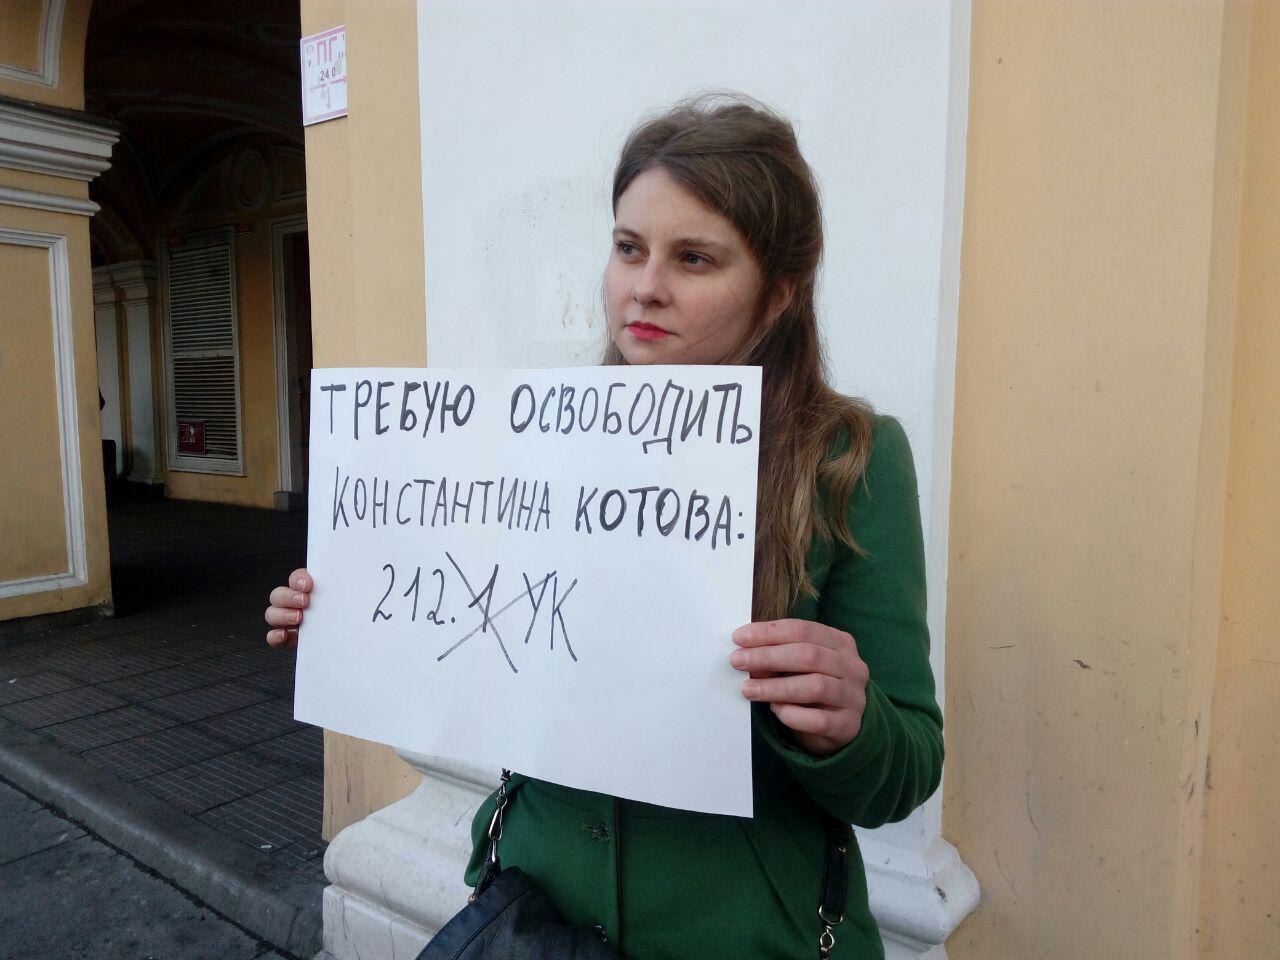 ПГ
240
ТРЕБУЮ ОСВОБОДИТЬ
КОНСТАНТИНА КОТОВА:
212.1 УК